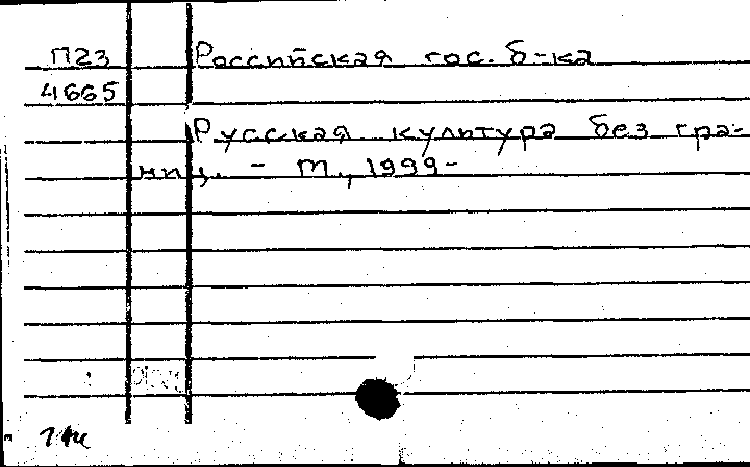 П23 Российская гос. б-ка
4665
Русская культура без гра-
ниц. - М., 1999-